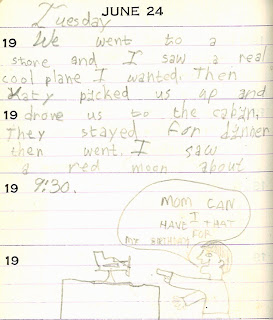 JUNE 24
Tuesday
19 We went to a
store and I saw a real
cool plane I wanted. Then
Katy picked us up and
19 drove us to the cabin,
They stayed for dinner
then went. I saw
a red moon about
19 9:30.
MOM CAN
I
HAVE THAT
FOR
MY BIRTHDAY
19